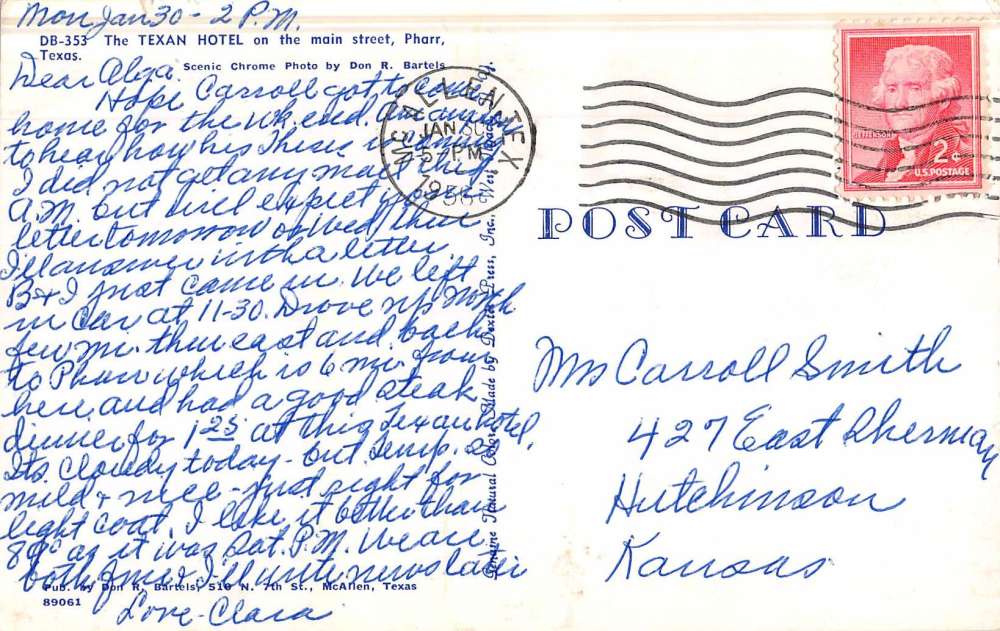 Mon Jan 30 - 2 P.M.
DB-353 The TEXAN HOTEL on the main street, Pharr,
Texas.
Scenic Chrome Photo by Don R. Bartels
Dear Alga.
Hope Carroll got to come
home for the wk. end. Am anxious
to hear how his Thesis is coming
I did not get any mail this
A.M. but will expect
letter tomorrow or Wed. then
I'll answer with a letter.
B & I just came in. We left
in Car at 11-30. Drove up North
few mi. then east and back
to Pharr which is 6 mi. from
here and had a good steak
dinner for 1 25 at this Texan hotel.
Its cloudy today - but temp. is
mild & nice - just right for
light coat. I like it better than
89° as it was Sat. P.M. We are
both fine. I'll write news later
Love - Clara
Pub. by Don R. Bartels, 510 N. 7th St., McAllen, Texas
89061
Genuine Natural Color Made by Dexter Press, Inc., West Nyack, N.Y.
McALLEN TEX
JAN 30
5 PM
1956
JEFFERSON
2¢
U.S. POSTAGE
POST CARD
Mrs Carroll Smith
427 East Sherman
Hutchinson
Kansas